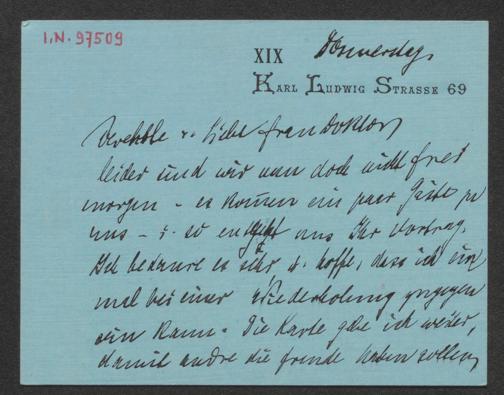 I.N. 97509
XIX Donnerstag.
KARL LUDWIG STRASSE 69
Verehrte u. liebe Frau Doktor,
leider sind wir nun doch nicht frei
morgen – es kommen ein paar Gäste zu
uns – u. so entgeht uns Ihr Vortrag.
Ich bedaure es sehr u. hoffe, dass ich ein
mal bei einer Wiederholung zugegen
sein kann. Die Karte gebe ich weiter,
damit andre die Freude haben sollen,